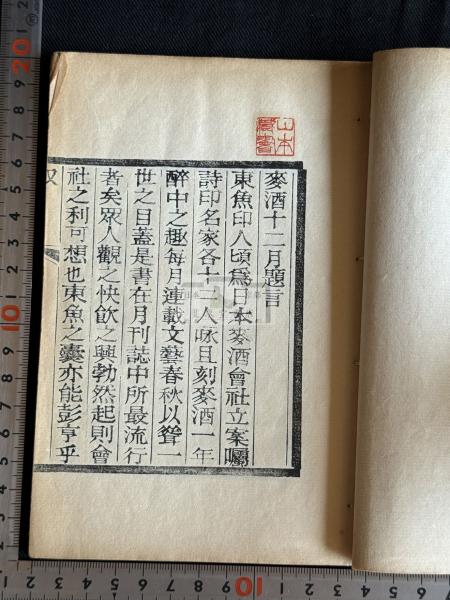 麥酒十二月題言
東魚印人頃爲日本麥酒會社立案囑
詩印名家各十二人咏且刻麥酒一年
醉中之趣每月連載文藝春秋以聳一
世之目蓋是書在月刊誌中所最流行
者矣眾人觀之快飲之興勃然起則會
社之利可想也東魚之囊亦能彭亨乎
山本
藏書
20
10
10